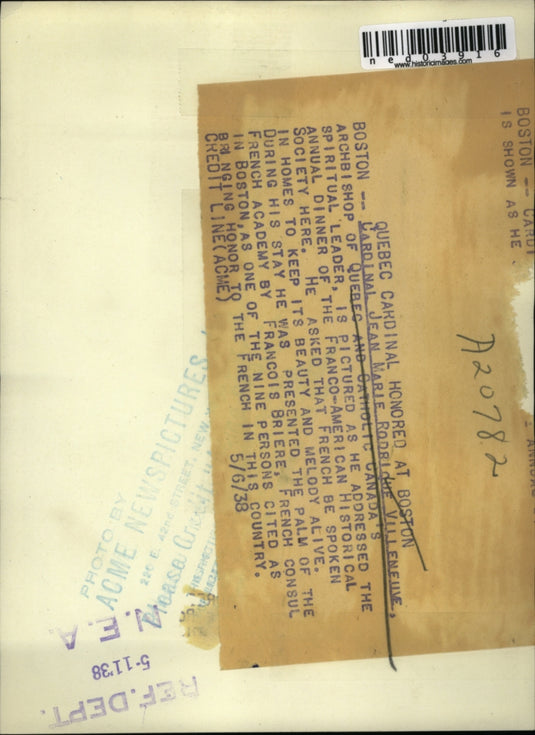 ned03916
www.historicimages.com
BOSTON -- CARDI
IS SHOWN AS HE
ANNUAL
A20782
QUEBEC CARDINAL HONORED AT BOSTON
BOSTON -- CARDINAL JEAN MARIE RODRIGUE VILLENEUVE,
ARCHBISHOP OF QUEBEC AND CATHOLIC CANADA'S
SPIRITUAL LEADER, IS PICTURED AS HE ADDRESSED THE
ANNUAL DINNER OF THE FRANCO-AMERICAN HISTORICAL
SOCIETY HERE. HE ASKED THAT FRENCH BE SPOKEN
IN HOMES TO KEEP ITS BEAUTY AND MELODY ALIVE.
DURING HIS STAY HE WAS PRESENTED THE PALM OF THE
FRENCH ACADEMY BY FRANCOIS BRIERE, FRENCH CONSUL
IN BOSTON, AS ONE OF THE NINE PERSONS CITED AS
BRINGING HONOR TO THE FRENCH IN THIS COUNTRY.
CREDIT LINE (ACME) 5/6/38
PHOTO BY
ACME NEWSPICTURES
220 E. 42ND STREET, NEW
Please Credit
N.E.A.
5-11'38
REF. DEPT.